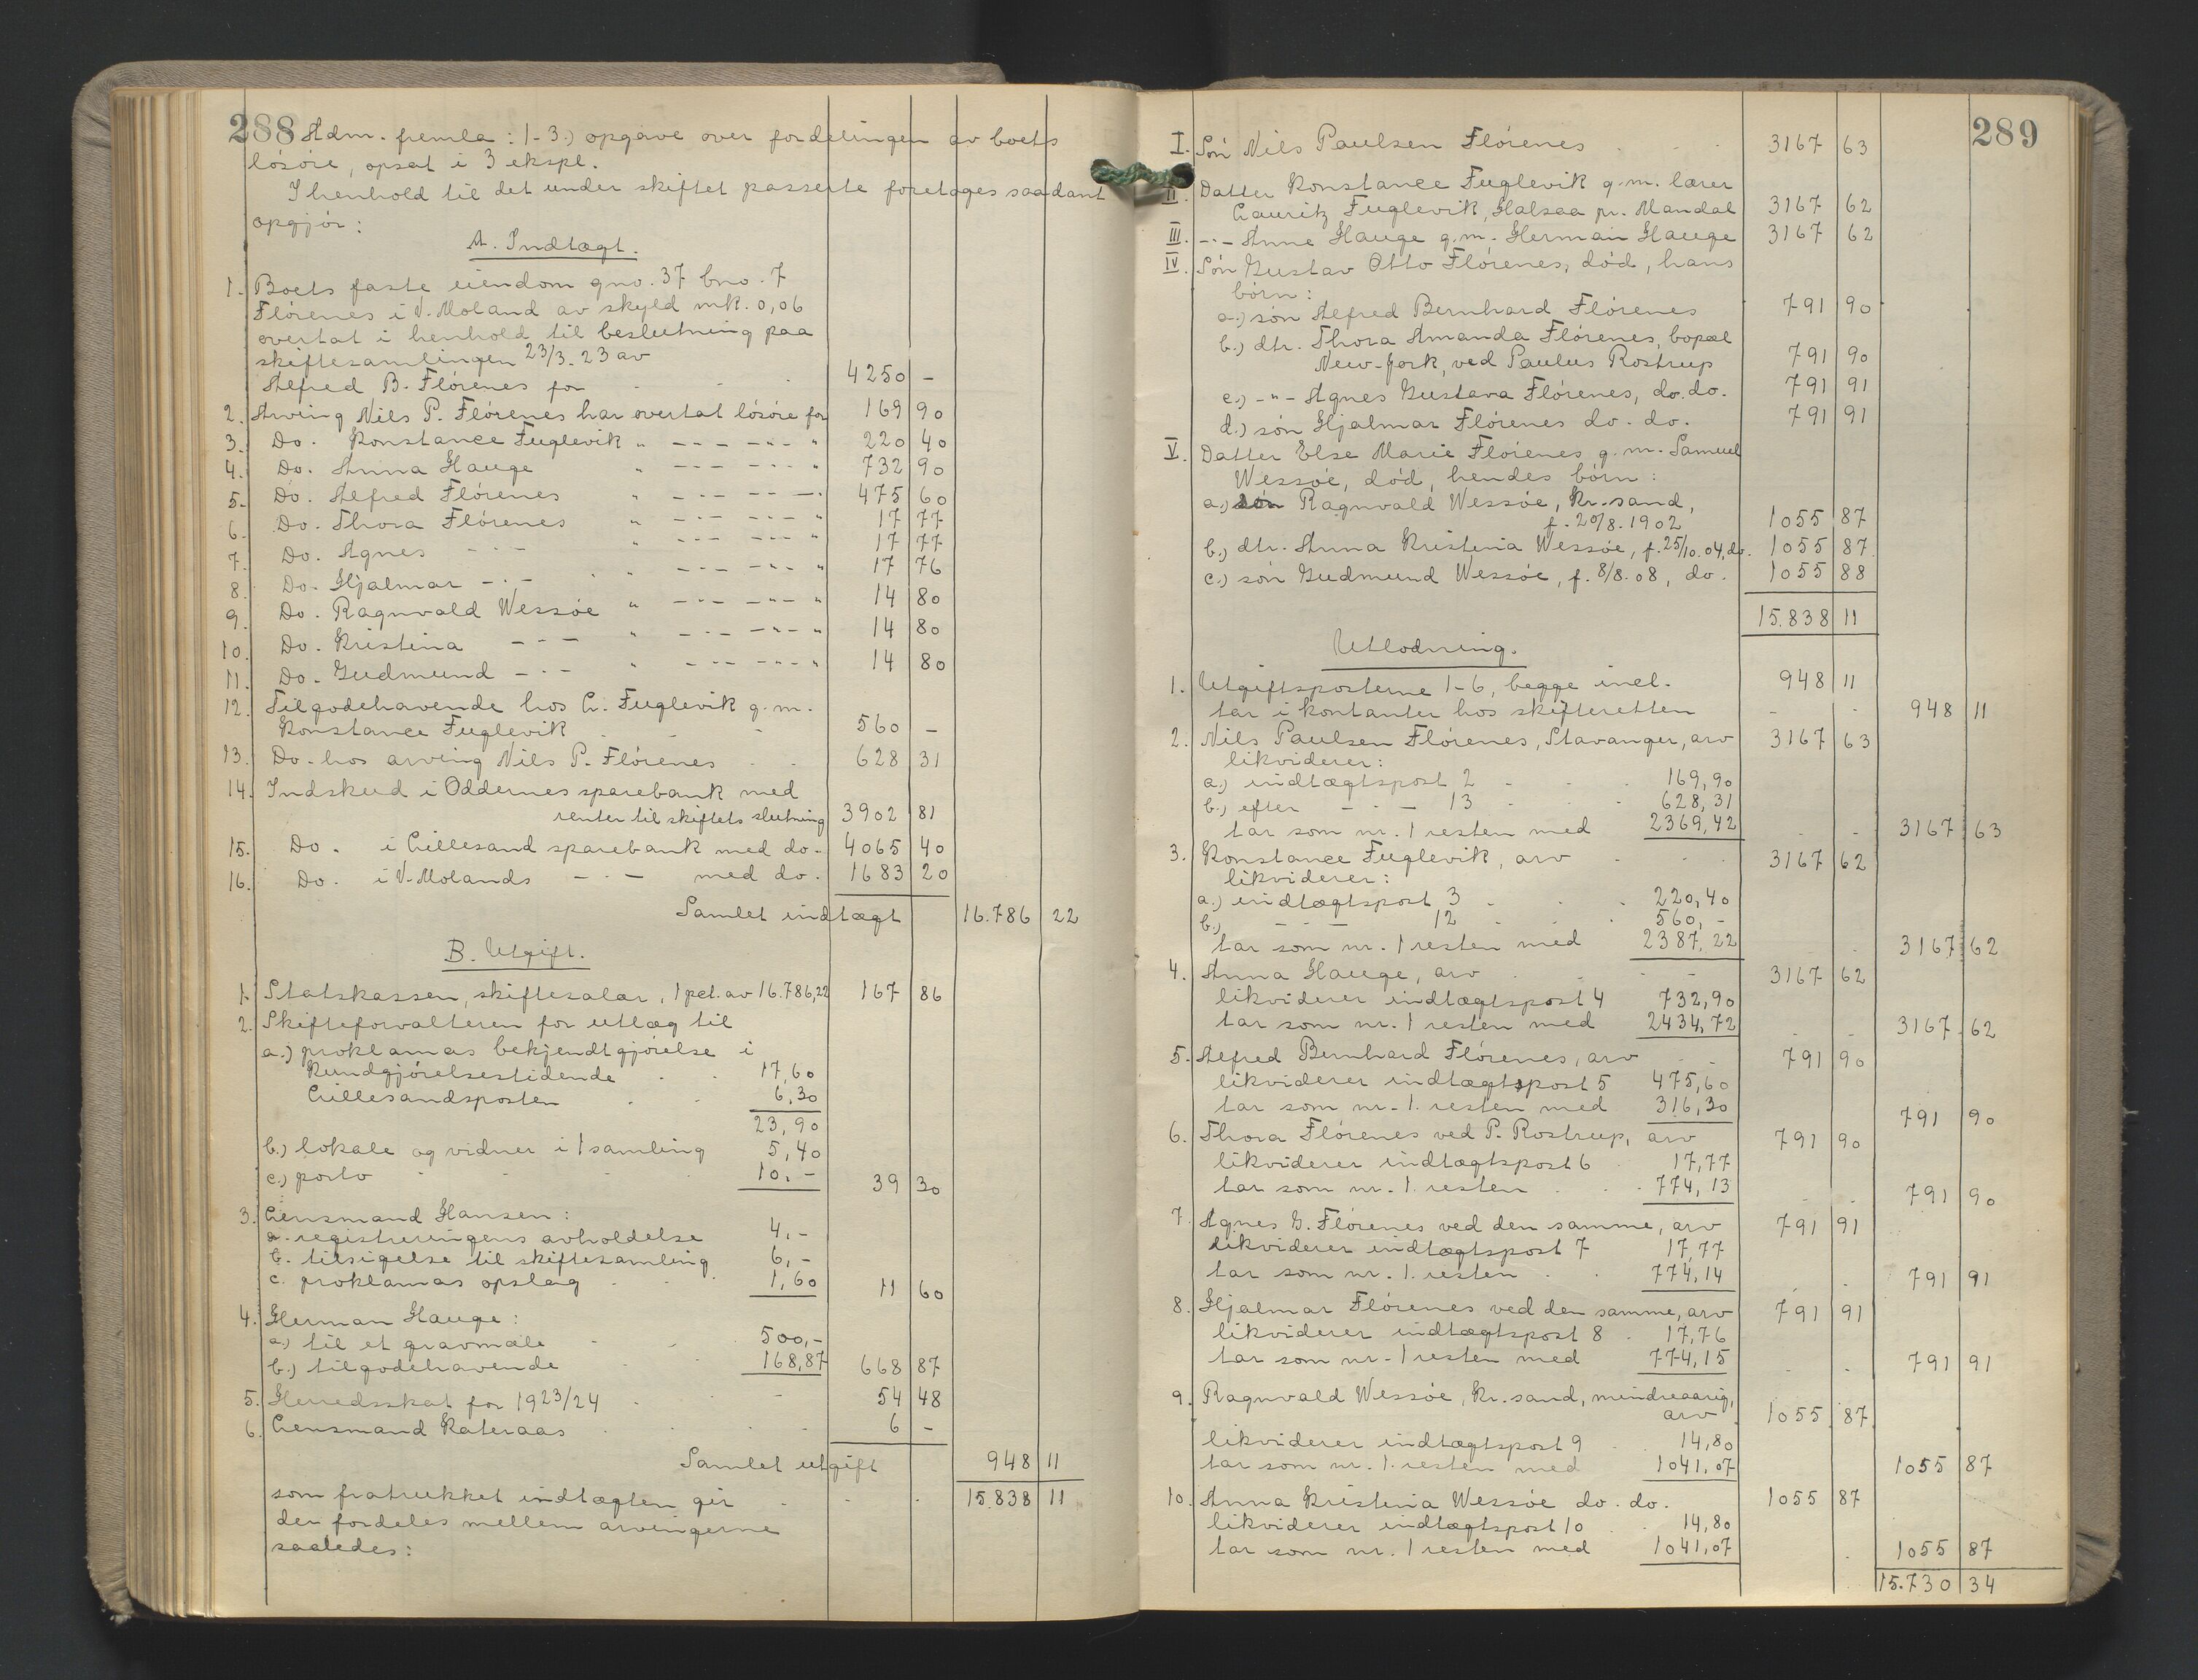 288 Adm. fremla: 1-3.) opgave over fordelingen av boets
løsøre, opsat i 3 ekspl.
I henhold til det under skiftet passerte foretages saadant
opgjør:
A. Indtægt.
1. Boets faste eiendom gno. 37 bno. 7
Flörenes i V. Moland av skyld mk. 0,06
overtat i henhold til beslutning paa
skiftesamlingen 23/3-23 av
Alfred B. Flörenes for 4250 -
2. Arving Nils P. Flörenes har overtat løsøre for 169 90
3. Do. Konstance Fuglevik " --- -"- " 220 40
4. Do. Anna Hauge " --- --- " 732 90
5. Do. Alfred Flörenes " --- --- 475 60
6. Do. Thora Flörenes " --- --- " 17 77
7. Do. Agnes -"- " --- --- " 17 77
8. Do. Hjalmar -"- " --- -"- " 17 76
9. Do. Ragnvald Wessøe " --- -"- " 14 80
10. Do. Kristina --- " --- -"- " 14 80
11. Do. Gudmund -"- " --- --- " 14 80
12. Tilgodehavende hos L. Fuglevik g.m.
Konstance Fuglevik 560 -
13. Do. hos arving Nils P. Flörenes 628 31
14. Indskud i Oddernes sparebank med
renter til skiftets slutning 3902 81
15. Do. i Lillesand sparebank med do. 4065 40
16. Do. i V. Molands -"- med do. 1683 20
Samlet indtægt 16.786 22
B. Utgift.
1. Statskassen, skiftesalær, 1 pct. av 16.786,22 167 86
2. Skifteforvalteren for utlæg til
a.) proklamas bekjendtgjørelse i
Kundgjørelsestidende 17,60
Lillesandsposten 6,30
23,90
b.) lokale og vidner i 1 samling 5,40
c.) porto 10,- 39 30
3. Lensmand Hansen:
a. registreringens avholdelse 4,-
b. tilsigelse til skiftesamling 6,-
c. proklamas opslag 1,60 11 60
4. Herman Hauge:
a.) til et gravmæle 500,-
b.) tilgodehavende 168,87 668 87
5. Herredsskat for 1923/24 54 48
6. Lensmand Kateraas 6 -
Samlet utgift 948 11
som fratrukket indtægten gir 15.838 11
der fordeles mellem arvingerne
saaledes:
289
I. Søn Nils Paulsen Flörenes 3167 63
II. Datter Konstance Fuglevik g.m. lærer
Lauritz Fuglevik, Halsaa pr. Mandal 3167 62
III. -"- Anne Hauge g.m. Herman Hauge 3167 62
IV. Søn Gustav Otto Flörenes, død, hans
børn:
a.) søn Alfred Bernhard Flörenes 791 90
b.) dtr. Thora Amanda Flörenes, bopæl
New-York, ved Paulus Rostrup 791 90
c.) -"- Agnes Gustava Flörenes, do. do. 791 91
d.) søn Hjalmar Flörenes do. do. 791 91
V. Datter Else Marie Flörenes g.m. Samuel
Wessøe, død, hendes børn:
a.) søn Ragnvald Wessøe, Kr.sand,
f. 20/8.1902 1055 87
b.) dtr. Anna Kristina Wessøe, f. 25/10.04, do. 1055 87
c.) søn Gudmund Wessøe, f. 8/8.08, do. 1055 88
15.838 11
Utlodning.
1. Utgiftsposterne 1-6, begge incl. 948 11
tar i kontanter hos skifteretten 948 11
2. Nils Paulsen Flörenes, Stavanger, arv 3167 63
likviderer:
a.) indtægtspost 2 169,90
b.) efter -"- 13 628,31
tar som nr. 1 resten med 2369,42 3167 63
3. Konstance Fuglevik, arv 3167 62
likviderer:
a.) indtægtspost 3 220,40
b.) --- 12 560,-
tar som nr. 1 resten med 2387,22 3167 62
4. Anna Hauge, arv 3167 62
likviderer indtægtspost 4 732,90
tar som nr. 1 resten med 2434,72 3167 62
5. Alfred Bernhard Flörenes, arv 791 90
likviderer indtægtspost 5 475,60
tar som nr. 1. resten med 316,30 791 90
6. Thora Flörenes ved P. Rostrup, arv 791 90
likviderer indtægtspost 6 17,77
tar som nr. 1. resten 774,13 791 90
7. Agnes G. Flörenes ved den samme, arv 791 91
likviderer indtægtspost 7 17,77
tar som nr. 1. resten 774,14 791 91
8. Hjalmar Flörenes ved den samme, arv 791 91
likviderer indtægtspost 8 17,76
tar som nr. 1 resten med 774,15 791 91
9. Ragnvald Wessøe, Kr.sand, mindreaarig,
arv 1055 87
likviderer indtægtspost 9 14,80
tar som nr. 1. resten med 1041,07 1055 87
10. Anna Kristina Wessøe do. do. 1055 87
likviderer indtægtspost 10 14,80
tar som nr. 1 resten med 1041,07 1055 87
15.730 34